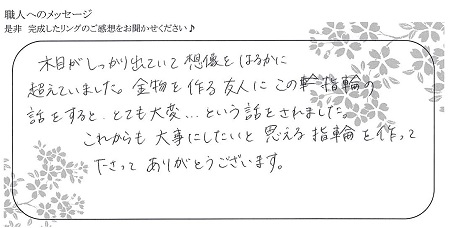 職人へのメッセージ
是非 完成したリングのご感想をお聞かせください♪
木目がしっかり出ていて想像をはるかに
超えていました。金物を作る友人にこの輪指輪の
話をすると、とても大変…という話をされました。
これからも大事にしたいと思える指輪を作って
下さって ありがとうございます。